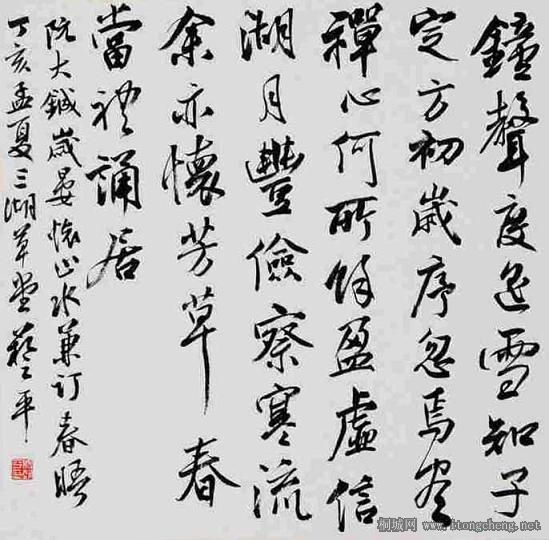 鐘聲度遥雪知子
定方初歲序忽焉盡
禪心何所餘盈虛信
湖月豐儉察寒流
余亦懷芳草春
當礼誦居
阮大鋮歲晏懷山水兼订春晤
丁亥孟夏三湖草堂平
桐城网 www.itongcheng.net